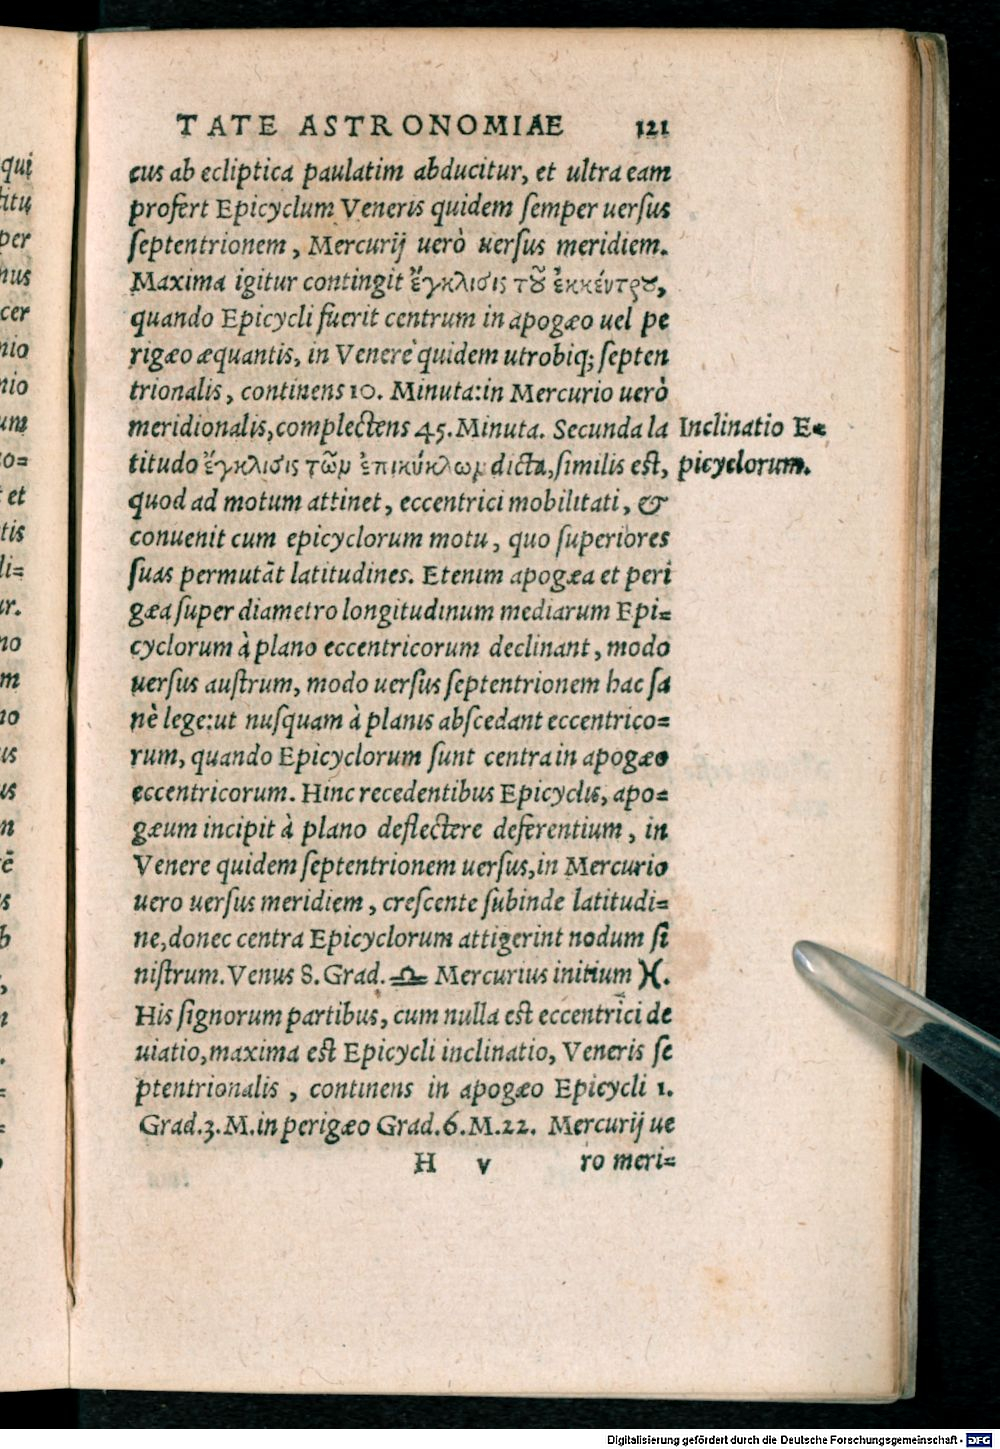 TATE ASTRONOMIAE 121
cus ab ecliptica paulatim abducitur, et ultra eam
profert Epicyclum Veneris quidem semper uersus
septentrionem, Mercurij uerò uersus meridiem.
Maxima igitur contingit ἔγκλισις τοῦ ἐκκέντρου,
quando Epicycli fuerit centrum in apogæo uel pe
rigæo æquantis, in Venere quidem utrobiq; septen
trionalis, continens 10. Minuta: in Mercurio uerò
meridionalis, complectens 45. Minuta. Secunda la
Inclinatio E=
titudo ἔγκλισις τῶν ἐπικύκλων dicta, similis est,
picyclorum.
quod ad motum attinet, eccentrici mobilitati, &
conuenit cum epicyclorum motu, quo superiores
suas permutāt latitudines. Etenim apogæa et peri
gæa super diametro longitudinum mediarum Epi=
cyclorum à plano eccentricorum declinant, modo
uersus austrum, modo uersus septentrionem hac sa
nè lege: ut nusquam à planis abscedant eccentrico=
rum, quando Epicyclorum sunt centra in apogæo
eccentricorum. Hinc recedentibus Epicyclis, apo=
gæum incipit à plano deflectere deferentium, in
Venere quidem septentrionem uersus, in Mercurio
uero uersus meridiem, crescente subinde latitudi=
ne, donec centra Epicyclorum attigerint nodum si
nistrum. Venus 8. Grad. ♎ Mercurius initium ♓.
His signorum partibus, cum nulla est eccentrici de
uiatio, maxima est Epicycli inclinatio, Veneris se
ptentrionalis, continens in apogæo Epicycli 1.
Grad. 3. M. in perigæo Grad. 6. M. 22. Mercurij ue
H v ro meri=
qui
titu
per
nus
cer
nio
nio
um
o=
et
tis
li=
ur.
no
m
no
us
us
n
ē
s
b
Digitalisierung gefördert durch die Deutsche Forschungsgemeinschaft - DFG